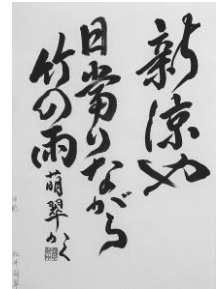 新涼や
日當りながら
竹の雨
萌翠かく